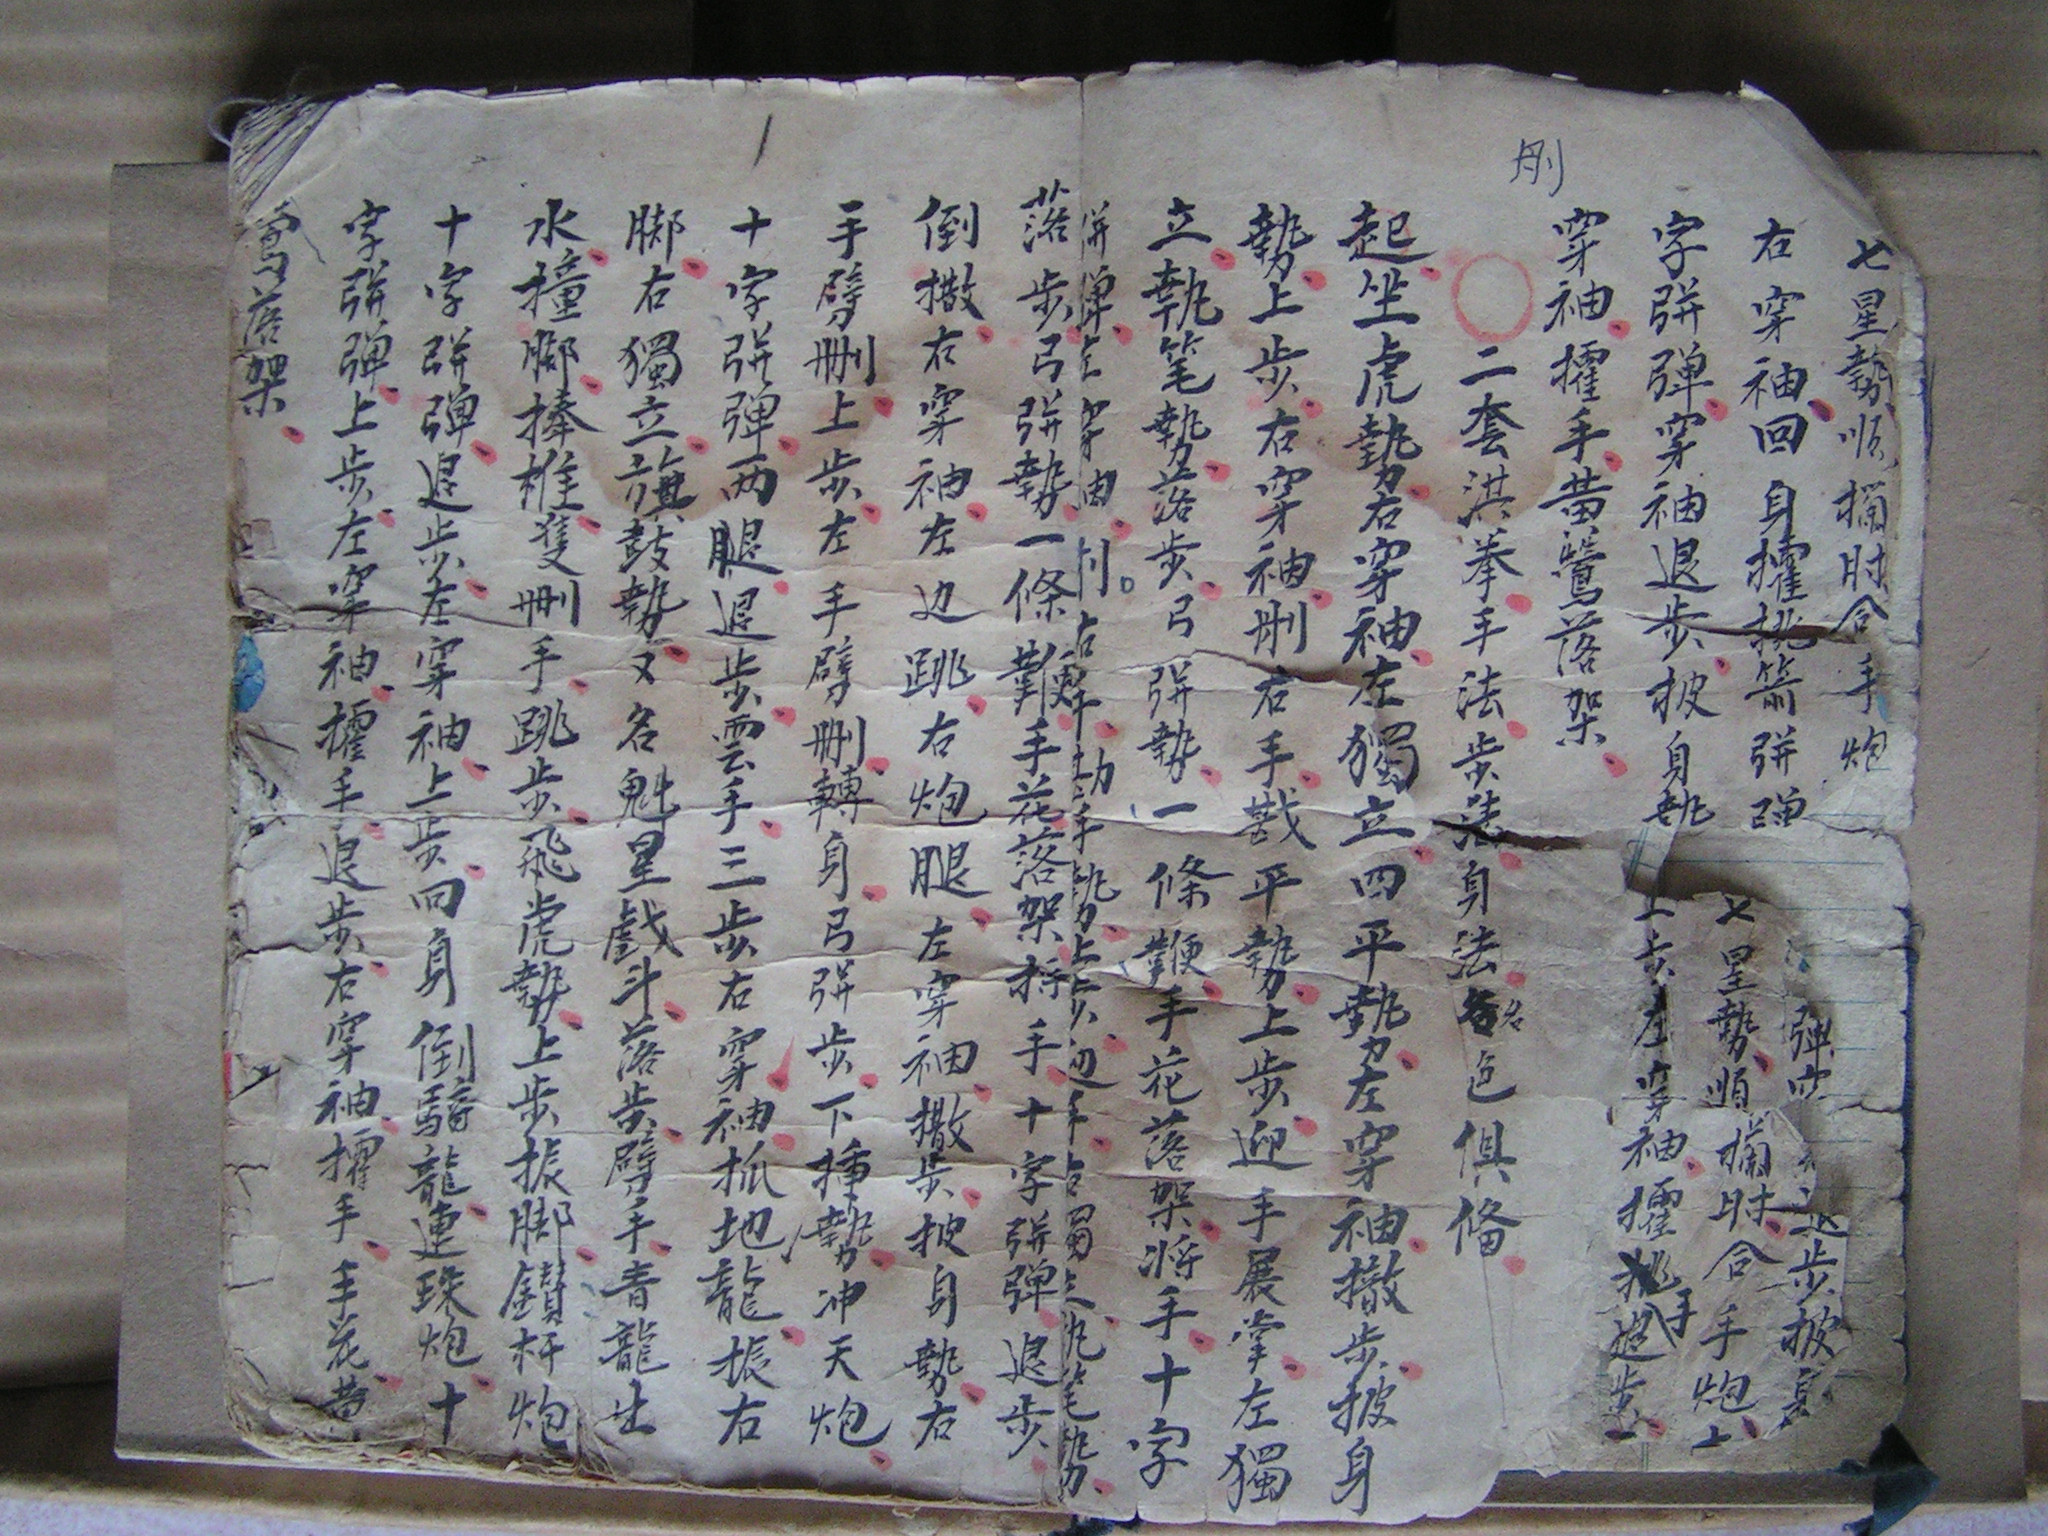 七星勢順攔肘合手炮
右穿袖回身擢挑箭弡弹
字弡弹穿袖退步披身執
穿袖擢手黄鶯落架
刪
弹 退步披身
七星勢順攔肘合手炮上
上步左穿袖擢手退步
二套洪拳手法步法身法各名色俱俻
起坐虎勢右穿袖左獨立四平勢左穿袖撤步披身
勢上步右穿袖刪右手戳平勢上步迎手展掌左獨
立執笔勢落步弓弡勢一條鞭手花落架将手十字
落步弓弡勢一條鞭手花落架将手十字弡弹退步
倒撒右穿袖左边跳右炮腿左穿袖撒步披身勢右
手劈刪上步左手劈刪轉身弓弡步下種勢冲天炮
十字弡弹两腿退步雲手三步右穿袖抓地龍振右
脚右獨立旗鼓勢又名魁星戲斗落步劈手青龍出
水撞脚捧椎隻刪手跳步飛虎勢上步振脚鑚杆炮
十字弡弹退步左穿袖上步回身倒騎龍連珠炮十
字弡弹上步左穿袖擢手退步右穿袖擢手手花黄
鶯落架